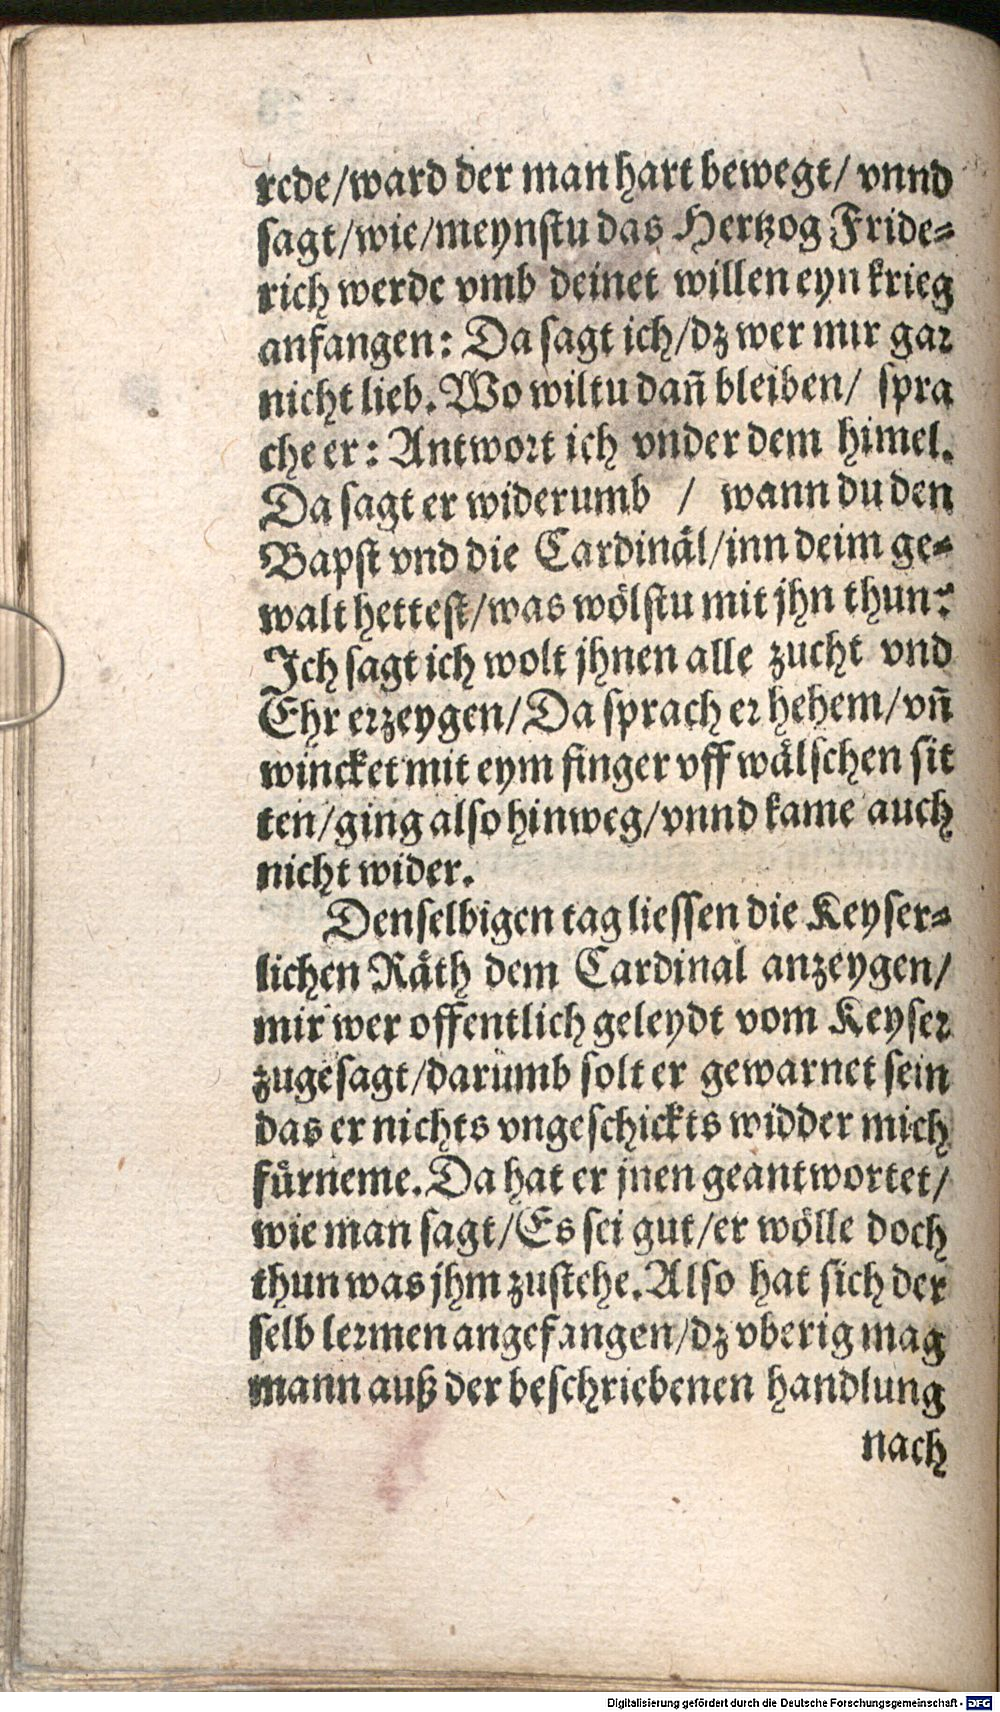 rede/ward der man hart bewegt/ vnnd
sagt/wie/meynstu das Hertzog Fride⸗
rich werde vmb deinet willen eyn krieg
anfangen: Da sagt ich/dz wer mir gar
nicht lieb. Wo wiltu dañ bleiben/ spra
che er: Antwort ich vnder dem himel.
Da sagt er widerumb / wann du den
Bapst vnd die Cardinäl/inn deim ge⸗
walt hettest/was wölstu mit jhn thun?
Ich sagt ich wolt jhnen alle zucht vnd
Ehr erzeygen/Da sprach er hehem/vñ
wincket mit eym finger vff wälschen sit
ten/ging also hinweg/vnnd kame auch
nicht wider.
Denselbigen tag liessen die Keyser⸗
lichen Räth dem Cardinal anzeygen/
mir wer offentlich geleydt vom Keyser
zugesagt/darumb solt er gewarnet sein
das er nichts vngeschickts widder mich
fürneme. Da hat er jnen geantwortet/
wie man sagt/Es sei gut/er wölle doch
thun was jhm zustehe. Also hat sich der
selb lermen angefangen/dz vberig mag
mann auß der beschriebenen handlung
nach
Digitalisierung gefördert durch die Deutsche Forschungsgemeinschaft - DFG